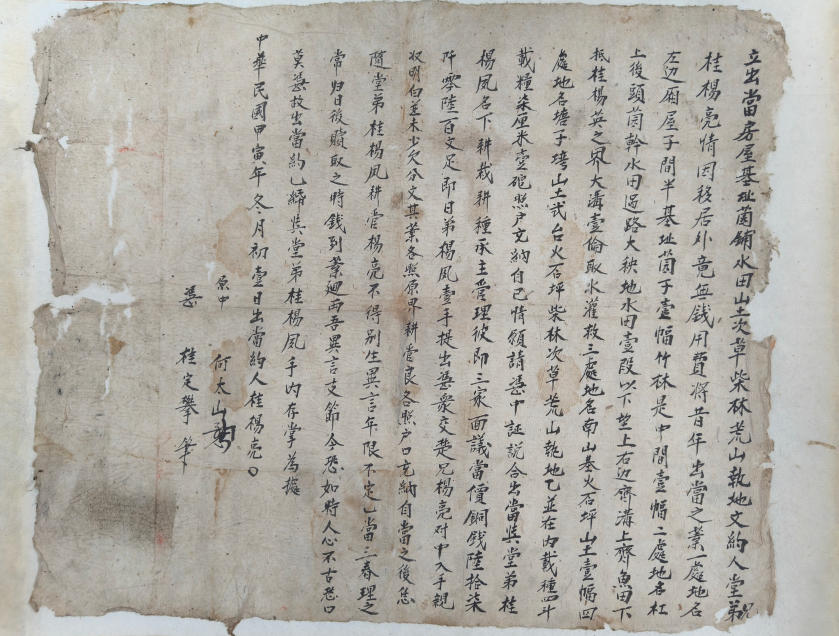 立出當房屋基址菌鋪水田山土次草柴林荒山執地文約人堂弟兄
桂楊亮情因移居外竟無錢用費將昔年出當之業一處地名
左边厢屋子間半基址菌子壹幅竹林是中間壹幅二處地名杠
上後頭菌幹水田過路大秧地水田壹段以下墊上右边齊溝上齊魚田下
抵桂楊英之界大溝壹倫取水灌救三處地名南山基火石坪山土壹幅四
處地名塘子塆山土弍台火石坪柴林次草荒山執地乙並在內載種四斗
載糧柒厘米壹碗照户充納自己情願請憑中証説合出當與堂弟桂
楊凤名下耕栽耕種承主管理彼即三家面議當價銅錢陸拾柒
阡零陸百文足即日弟楊凤壹手提出憑衆交楚兄楊亮对中入手親
収明白並未少欠分文其業各照原界耕管良各照户口充納自當之後恁
隨堂弟桂楊凤耕管楊亮不得别生異言年限不定乙當三春理之
常归日後贖取之時錢到業廻両吾異言支節今恐如時人心不古恐口
莫憑故出當約乙紙與堂弟桂楊凤手内存掌為據
中華民國甲寅年冬月初壹日出當約人桂楊亮〇
原中 何太山
憑 桂定攀 筆